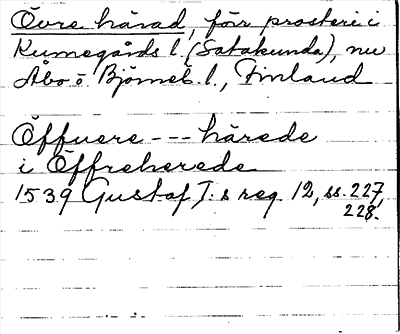 Övre härad, förr prosteri i
Kumogårds l. (Satakunda), nu
Åbo o. Björneb. l., Finland
Öffuere --- härede
i Öffreherede
1539 Gustaf I:s reg. 12, ss. 227,
228.